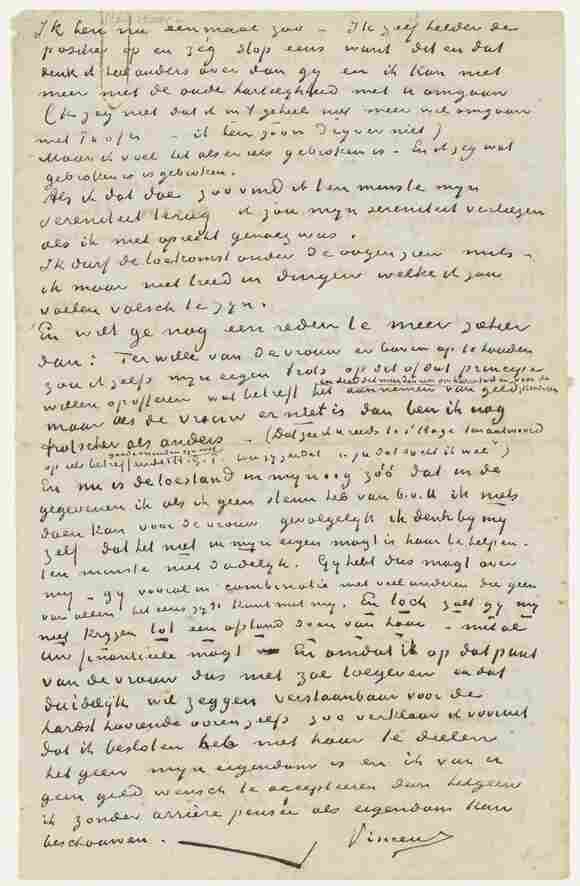 Ik ben nu eenmaal zoo – Ik zelf helder de
positie op en zeg stop eens want dit en dat
denk ik heel anders over dan gy en ik kan niet
meer met de oude hartelykheid met U omgaan
(Ik zeg niet dat ik in 't geheel niet meer wil omgaan
met – ik ben zoon Dryver niet)
Maar ik voel het als er iets gebroken is – En ik zeg wat
gebroken is is gebroken.
Als ik dat doe zoo vind ik ten minste myn
sereniteit terug ik zou myn sereniteit verliezen
als ik niet oprecht genoeg was.
Ik durf de toekomst onder de oogen zien mits –
ik maar niet treed in dingen welke ik zou
voelen valsch te zyn.
En wilt ge nog een reden te meer ziehier
dan: Ter wille van de vrouw er boven op te houden
zou ik zelfs myn eigen trots op dit of dat principe
willen opofferen wat betreft het aannemen van geld
maar als de vrouw er niet is dan ben ik nog
trotscher als anders – (Dat zeide ik U reeds in s'Hage
en gy zyt dat „ ja dat dacht ik wel")
En nu is de toestand in myn oog zóó dat in de
gegevenen ik als ik geen steun heb van b.v. U ik niets
doen kan voor de vrouw gevolgelyk ik denk by my
zelf dat het niet in myn eigen magt is haar te helpen.
ten minste niet dadelyk. Gy hebt dus magt over
my – gy vooral in combinatie met veel anderen die geen
van allen het eens zyn kunt met my. En toch zult gy my
niet krygen tot een afstand doen van haar – met al
Uw financieele magt En omdat ik op dat punt
van de vrouw dus niet zal toegeven en dat
duidelyk wil zeggen verstaanbaar voor de
hardst hoorende ooren zelfs zoo verklaar ik vooruit
dat ik besloten heb met haar te deelen
het geen myn eigendom is en ik van U
geen geld wensch te accepteeren dan hetgeen
ik zonder arrière pensée als eigendom kan
beschouwen. – Vincent